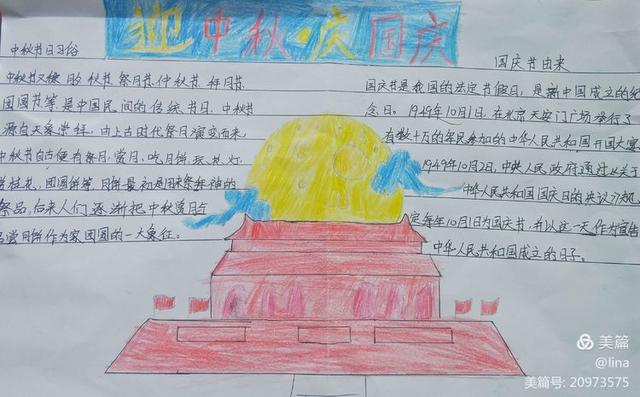 迎中秋·庆国庆
中秋节日习俗
中秋节又称 秋节 祭月节 仲秋节 拜月节
团圆节等是中国民间的传统节日. 中秋节
源自天象崇拜, 由上古时代祭月演变而来.
中秋节自古便有祭月,赏月,吃月饼 玩花灯.
赏桂花, 团圆饼等, 月饼最初是用来祭拜神的
祭品, 后来人们逐渐把中秋赏月与
品尝月饼作为家团圆的一大象征。
国庆节由来
国庆节是我国的法定节假日, 是新中国成立的纪
念日。1949年10月1日, 在北京天安门广场举行了
有数十万的军民参加的中华人民共和国开国大宴
1949年10月2日, 中央人民政府通过《关于
中华人民共和国国庆日的决议》规
定每年10月1日为国庆节, 并以这一天作为宣告
中华人民共和国成立的日子。
美篇
@lina
美篇号: 20973575